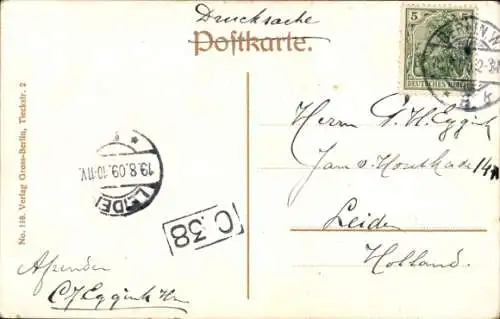 Drucksache
Postkarte.
5 5
DEUTSCHES REICH
BERLIN W.
Herrn G. H. Eggink
Jan v. Houtkade 14
Leiden
Holland.
LEIDEN
19.8.09. 10-11V.
C.38
Afzender
C J Eggink Hn
No. 118. Verlag Gross-Berlin, Tieckstr. 2